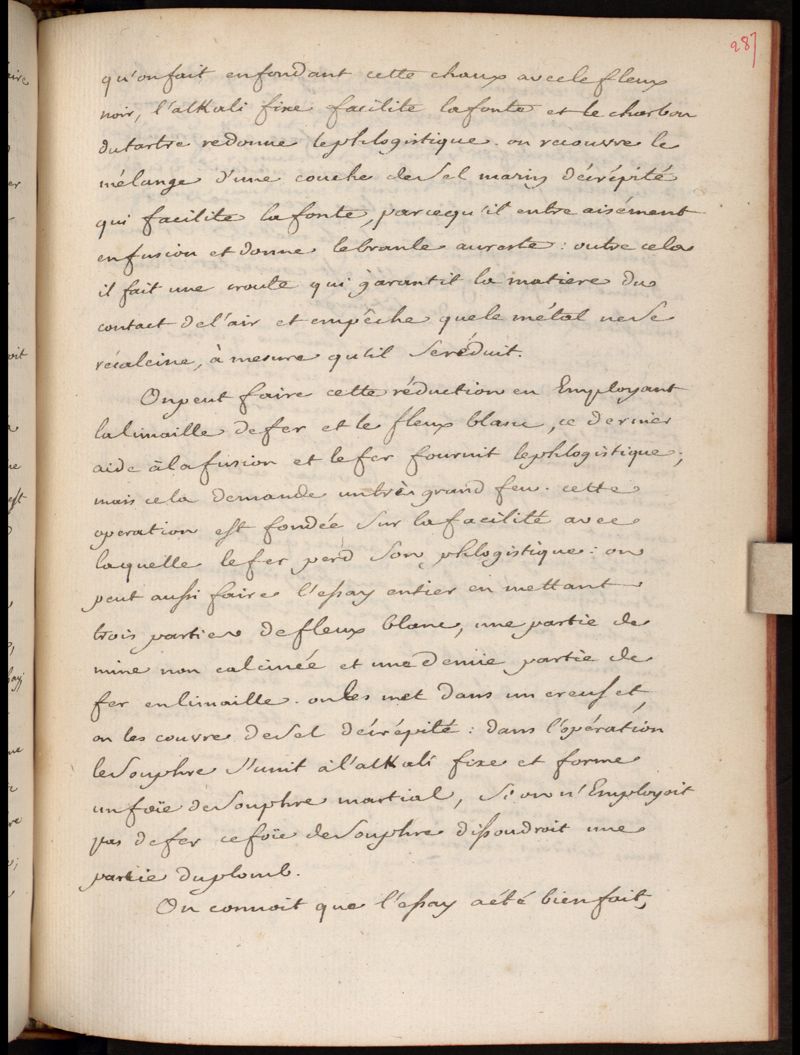 287
qu'on fait en fondant cette chaux avec le fleux
noir, l'alkali fixe facilite la fonte et le charbon
du tartre redonne le phlogistique. on recouvre le
mélange d'une couche de sel marin décrépité
qui facilite la fonte, parcequ'il entre aisément
en fusion et donne le branle au reste : outre cela
il fait une croute qui garantit la matiere du
contact de l'air et empêche que le métal ne se
récalcine, à mesure qu'il se réduit.
On peut faire cette réduction en Employant
la limaille de fer et le fleux blanc, ce dernier
aide à la fusion et le fer fournit le phlogistique;
mais cela demande un très grand feu. cette
operation est fondée sur la facilité avec
laquelle le fer perd son phlogistique : on
peut aussi faire l'essay entier en mettant
trois parties de fleux blanc, une partie de
mine non calcinée et une demie partie de
fer en limaille. on les met dans un creuset
on les couvre de sel décrépité : dans l'opération
le souphre s'unit à l'alkali fixe et forme
un foïe de souphre martial, si on n'Employoit
pas de fer ce foïe de souphre dissoudroit une
partie du plomb.
On connoit que l'essay a été bien fait,